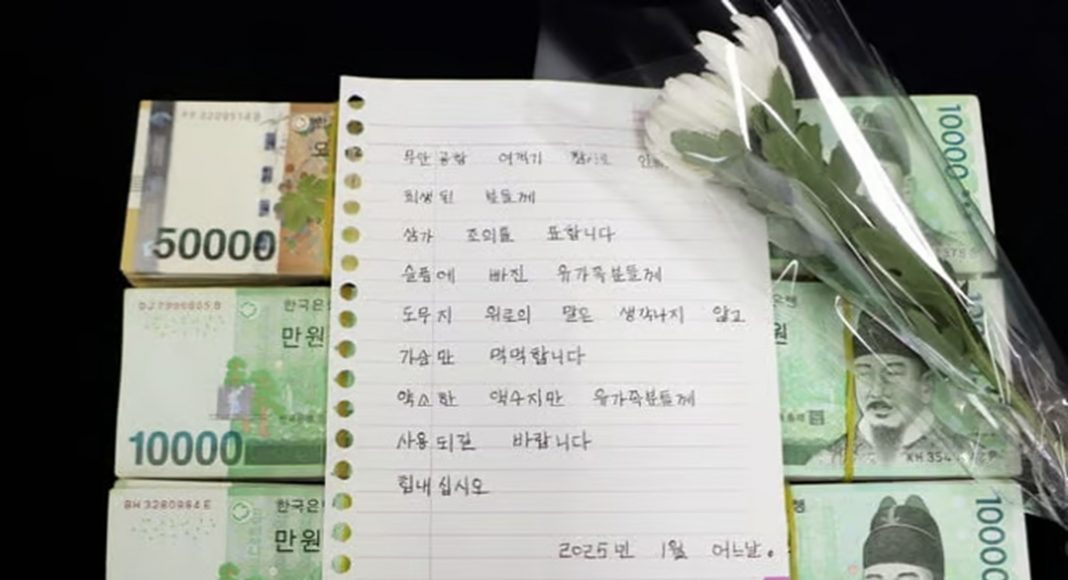 무안공항 여객기 참사로 인해
희생된 분들께
삼가 조의를 표합니다
슬픔에 빠진 유가족분들께
도무지 위로의 말은 생각나지 않고
가슴만 먹먹합니다
약소한 액수지만 유가족분들께
사용되길 바랍니다
힘내십시오
2025년 1월 어느날.
50000
한국은
만원
10000
한국은
만원
10000
원
KH 354
10000